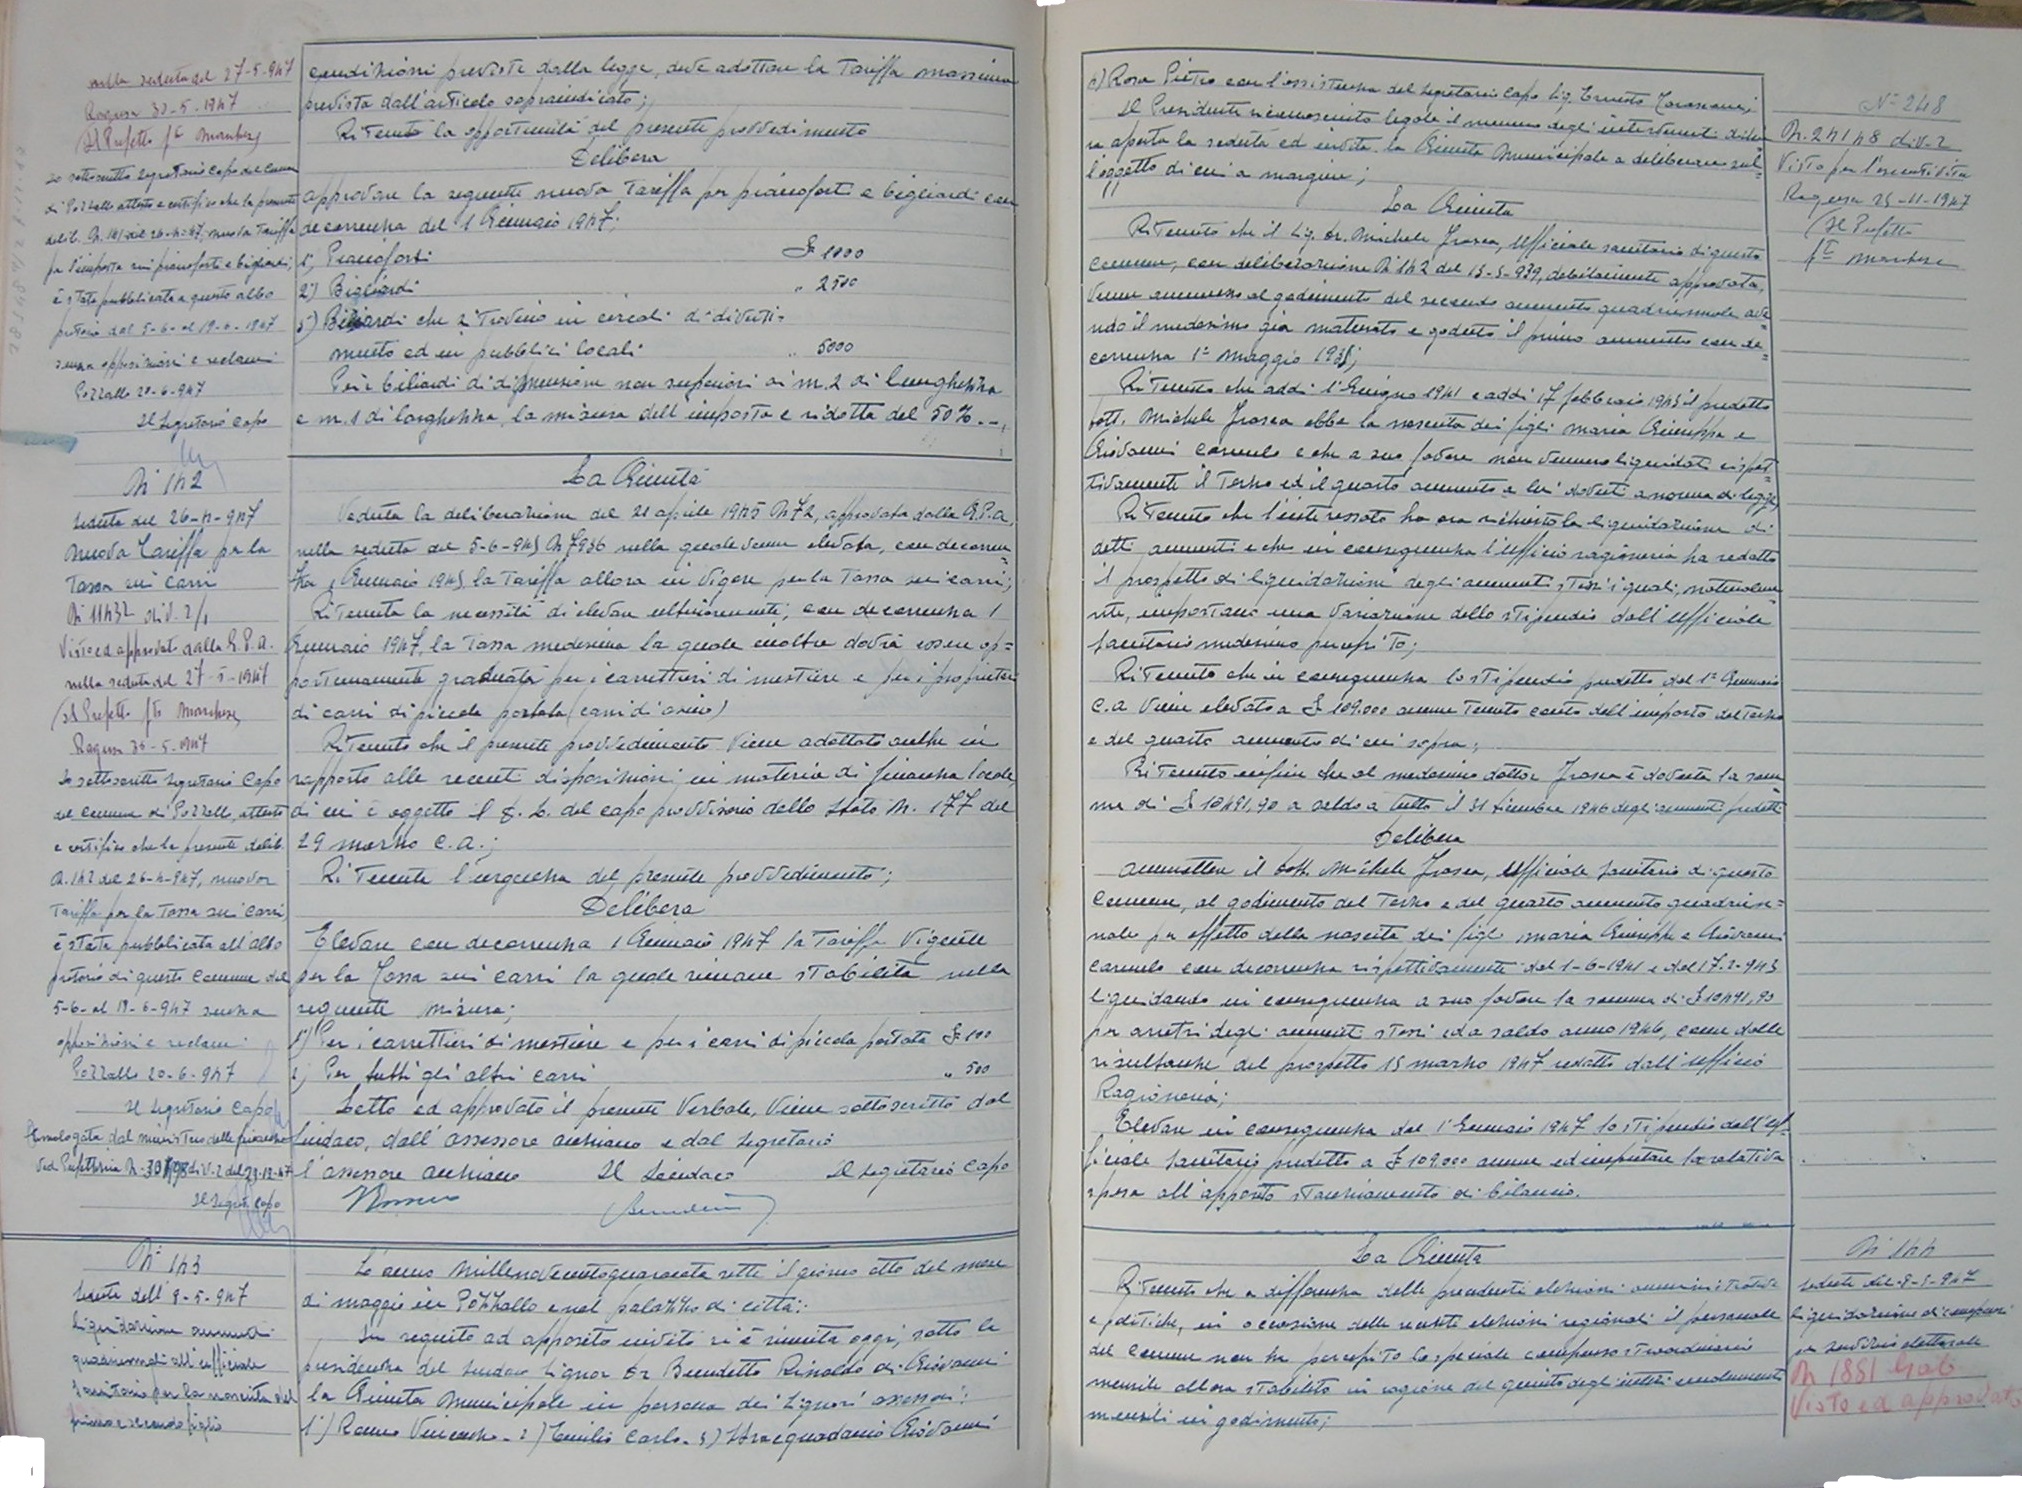 nella seduta del 27-5-947
Ragusa 30-5-1947
Il Prefetto fto
Io sottoscritto Segretario Capo del Comune
di Pozzallo attesto e certifico che la presente
delib. N. 141 del 26-4-47, nuova Tariffa
per l'imposta sui pianoforti e bigliardi,
è stata pubblicata a questo albo
pretorio dal 5-6- al 19-6-1947
senza opposizioni e reclami
Pozzallo 20-6-947
Il Segretario Capo
condizioni previste dalla legge, deve adottare la Tariffa massima
prevista dall'articolo sopraindicato;
Ritenuto la opportunità del presente provvedimento
Delibera
approvare la seguente nuova Tariffa per pianoforti e bigliardi con
decorrenza del 1 Gennaio 1947:
1) Pianoforti £ 1000
2) Bigliardi " 2500
3) Biliardi che si trovino in circoli di diverti=
mento ed in pubblici locali " 5000
Per i biliardi di dimensione non superiori ai m. 2 di lunghezza
e m. 1 di larghezza, la misura dell'imposta e ridotta del 50%.
N. 142
Seduta del 26-4-947
Nuova Tariffa per la
Tassa sui carri
N. 11432 div. 2/1
Visto ed approvato dalla G.P.A.
nella seduta del 27-5-1947
Il Prefetto fto
Ragusa 30-5-947
Io sottoscritto Segretario Capo
del Comune di Pozzallo, attesto
e certifico che la presente delib.
N. 142 del 26-4-947, nuova
Tariffa per la Tassa sui carri,
è stata pubblicata all'albo
pretorio di questo Comune dal
5-6- al 19-6-947 senza
opposizioni e reclami
Pozzallo 20-6-947
Il Segretario Capo
Omologata dal ministero delle finanze
Ved. Prefettizia N. div. 2 del 29-12-47
Il Segret. Capo
La Giunta
Veduta la deliberazione del 21 aprile 1945 N. 72, approvata dalla G.P.A.
nella seduta del 5-6-945 N. 7936 nella quale venne elevata, con decorren=
za 1 Gennaio 1945, la Tariffa allora in vigore per la Tassa sui carri;
Ritenuta la necessità di elevare ulteriormente, con decorrenza 1
Gennaio 1947, la Tassa medesima la quale inoltre dovrà essere op=
portunamente graduata per i carrettieri di mestiere e per i proprietari
di carri di piccola portata (carri d'asino)
Ritenuto che il presente provvedimento viene adottato anche in
rapporto alle recenti disposizioni in materia di finanza locale,
di cui è oggetto il D. L. del capo provvisorio dello Stato N. 177 del
29 marzo c.a.;
Ritenuta l'urgenza del presente provvedimento;
Delibera
Elevare con decorrenza 1 Gennaio 1947 la Tariffa vigente
per la Tassa sui carri la quale rimane stabilita nella
seguente misura;
1) Per i carrettieri di mestiere e per i carri di piccola portata £ 100
2) Per tutti gli altri carri " 500
Letto ed approvato il presente verbale, viene sottoscritto dal
Sindaco, dall'assessore anziano e dal Segretario
l'assessore anziano Il Sindaco Il Segretario Capo
N. 143
Seduta dell'8-5-947
Liquidazione aumenti
quadriennali all'ufficiale
Sanitario per la nascita del
primo e secondo figlio
L'anno Millenovecentoquarantasette il giorno otto del mese
di maggio in Pozzallo e nel palazzo di città:
In seguito ad apposito invito si è riunita oggi, sotto la
presidenza del Sindaco Signor Dr Benedetto Rinaldo di Giovanni
la Giunta Municipale in persona dei Signori assessori:
1) Rosso Vincenzo - 2) Emilio Carlo - 3) Stracquadanio Giovanni
4) Rosa Pietro con l'assistenza del Segretario Capo Sig. Ernesto
Il Presidente riconosciuto legale il numero degli intervenuti dichia
ra aperta la seduta ed invita la Giunta Municipale a deliberare sul=
l'oggetto di cui a margine;
La Giunta
Ritenuto che il Sig. Dr. Michele Frasca, Ufficiale sanitario di questo
Comune, con deliberazione N. 142 del 15-5-939, debitamente approvata,
venne ammesso al godimento del secondo aumento quadriennale ave=
ndo il medesimo già maturato e goduto il primo aumento con de=
correnza 1° Maggio 1935;
Ritenuto che addì 1° Giugno 1941 e addì 17 febbraio 1943 il predetto
dott. Michele Frasca ebbe la nascita dei figli Maria Giuseppa e
Giovanni Carmelo e che a suo favore non vennero liquidati rispet=
tivamente il terzo ed il quarto aumento a lui dovuti a norma di legge;
Ritenuto che l'interessato ha ora richiesto la liquidazione di
detti aumenti e che in conseguenza l'ufficio ragioneria ha redatto
il prospetto di liquidazione degli aumenti stessi i quali, naturalme
nte, importano una variazione dello stipendio dall'Ufficiale
Sanitario medesimo percepito;
Ritenuto che in conseguenza lo stipendio predetto dal 1° Gennaio
c.a. viene elevato a £ 109.000 annue tenuto conto dell'importo del terzo
e del quarto aumento di cui sopra;
Ritenuto infine che al medesimo dottor Frasca è dovuta la som
ma di £ 10491,90 a saldo a tutto il 31 dicembre 1946 degli aumenti predetti
Delibera
Ammettere il Dott. Michele Frasca, Ufficiale Sanitario di questo
Comune, al godimento del terzo e del quarto aumento quadrien=
nale per effetto della nascita dei figli Maria Giuseppa e Giovanni
Carmelo con decorrenza rispettivamente dal 1-6-1941 e dal 17-2-943
liquidando in conseguenza a suo favore la somma di £ 10491,90
per arretri degli aumenti stessi ed a saldo anno 1946, come dalle
risultanze del prospetto 15 marzo 1947 redatto dall'ufficio
Ragioneria;
Elevare in conseguenza dal 1° Gennaio 1947 lo stipendio dell'Uf=
ficiale Sanitario predetto a £ 109.000 annue ed imputare la relativa
spesa all'apposito stanziamento di bilancio.
N° 248
N. 24148 div. 2
Visto per l'esecutività
Ragusa 25-11-1947
Il Prefetto
fto
La Giunta
Ritenuto che a differenza delle precedenti elezioni amministrative
e politiche, in occasione delle recenti elezioni regionali il personale
del Comune non ha percepito lo speciale compenso straordinario
mensile allora stabilito in ragione del quinto degli interi emolumenti
mensili in godimento;
N. 144
Seduta dell'8-5-947
Liquidazione di compensi
per servizio elettorale
N 1851 Gab
Visto ed approvato